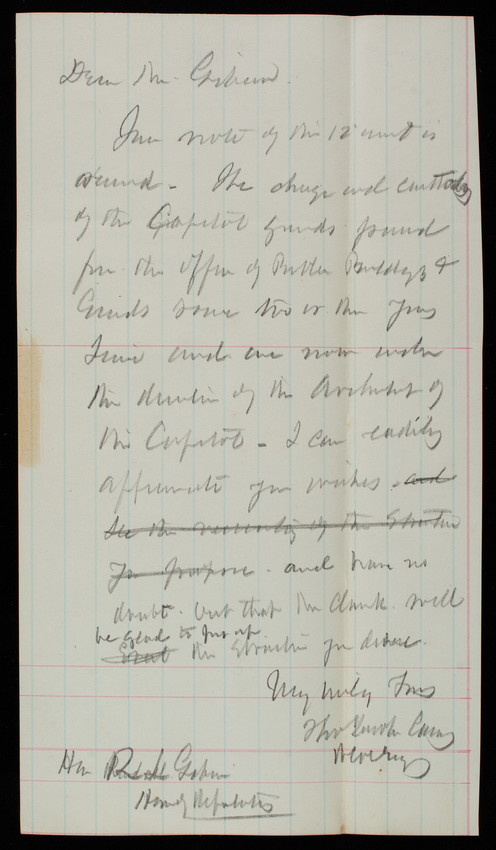 Dear Mr. Gibson.
Your note of the 12 inst is
received - The charge and custody
of the Capitol grounds passed
from the Office of Public Buildings &
Grounds some two or three years
since and are now under
the direction of the Architect of
the Capitol - I can readily
appreciate your wishes and
see the necessity of the structure
you propose - and have no
doubt but that Mr Clark will
be glad to put up
the structure you desire.
Very truly Yours
Thos Lincoln Casey
Hon